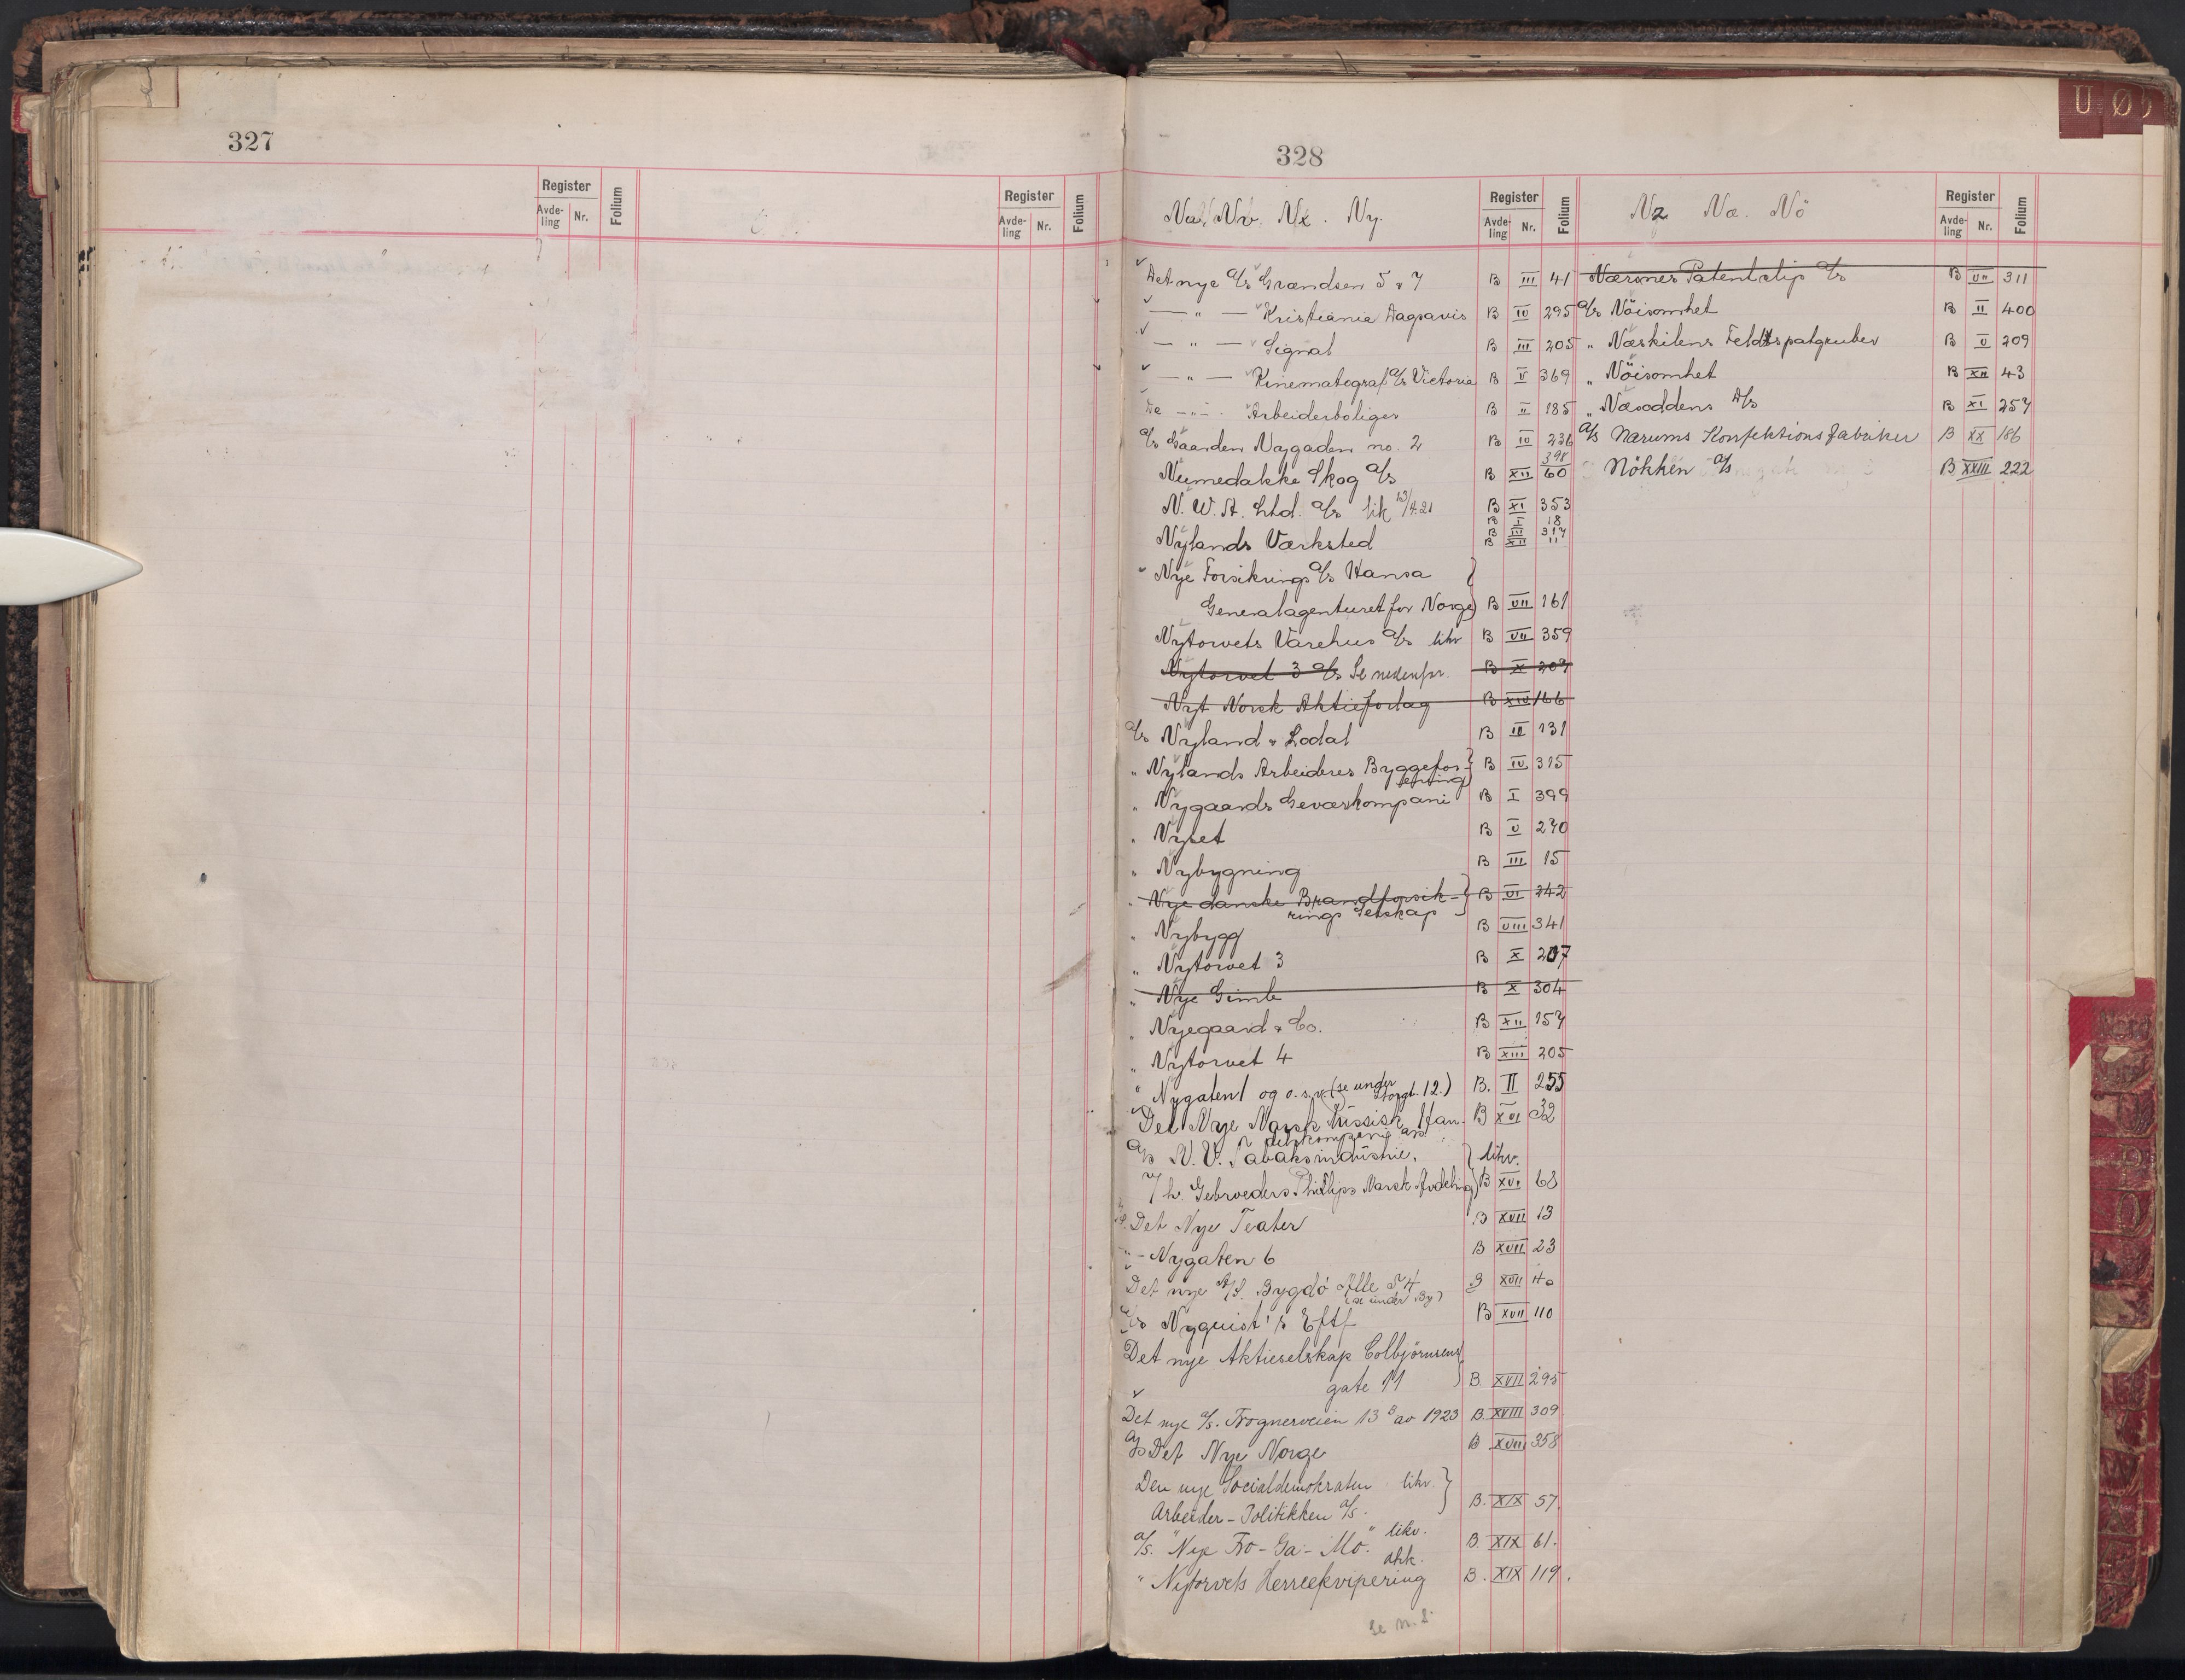 327
Register
Avde-
ling
Nr.
Folium
Register
Avde-
ling
Nr.
Folium
328
U Ø
Nu. Nv. Nx. Ny.
Register
Avde-
ling
Nr.
Folium
Det nye A/s Grændsen 5 & 7 B III 41
— " — Kristiania Dagsavis B IV 295
— " — Signal B III 205
— " — Kinematograf A/s Victoria B V 369
De — " — Arbeiderboliger B II 185
A/s Gaarden Nygaden no. 2 B IV 236
398
Numedalske Skog A/s B XII 60
N. W. A. Ltd. A/s lik 13/4.21 B XI 353
B I 18
Nylands Værksted B III 317
B XII 11
" Nye Forsikrings A/s Hansa }
Generalagenturet for Norge B VII 161
Nytorvets Varehus A/s likv B VII 359
Nytorvet 3 A/s Se nedenfor. B X 207
Nyt Norsk Aktieforlag B XIV 166
A/s Nyland & Lodal B III 131
" Nylands Arbeideres Byggefor- } B IV 315
ening
" Nygaards Geværkompani B I 399
" Nyset B V 270
" Nybygning B III 15
" Nye danske Brandforsik- } B VI 242
rings Selskap
" Nybygg B VIII 341
" Nytorvet 3 B X 207
" Nye Gimle B X 304
" Nyegaard & Co. B XII 157
" Nytorvet 4 B XIII 205
" Nygaten 1 og o.s.v. (se under B. II 255
Storgt. 12.)
Det Nye Norsk Russisk Han- B XVI 32
delskompani a/s
A/s N. V. Tabaksindustrie. } likv.
v/h. Gebroeders Philips Norsk Avdeling B XVI 68
Det Nye Teater B XVII 13
" - Nygaten 6 B XVII 23
Det nye A/S. Bygdö Alle 54 B XVII 40
(se under By)
A/s Nyquist's Eftf B XVII 110
Det nye Aktieselskap Colbjörnsens }
gate 11 B. XVII 295
Det nye A/s. Frognerveien 13 B av 1923 B. XVIII 309
A/s Det Nye Norge B XVIII 358
Den nye Socialdemokraten likv. }
Arbeider-Politikken A/s. B. XIX 57.
A/s. "Nye Fro-Ga-Mo." likv. B. XIX 61.
" Nytorvets Herreekvipering B. XIX 119.
Se n. S.
Nz Næ. Nö
Register
Avde-
ling
Nr.
Folium
Nærsnes Patentslip A/s B VII 311
A/s Nöisomhet B II 400
" Næskilens Feldtspatgruber B V 209
" Nöisomhet B XII 43
" Næsoddens A/s B XI 257
A/s Nærums Konfektions fabriker B XX 186
Nökken A/s B XXIII 222